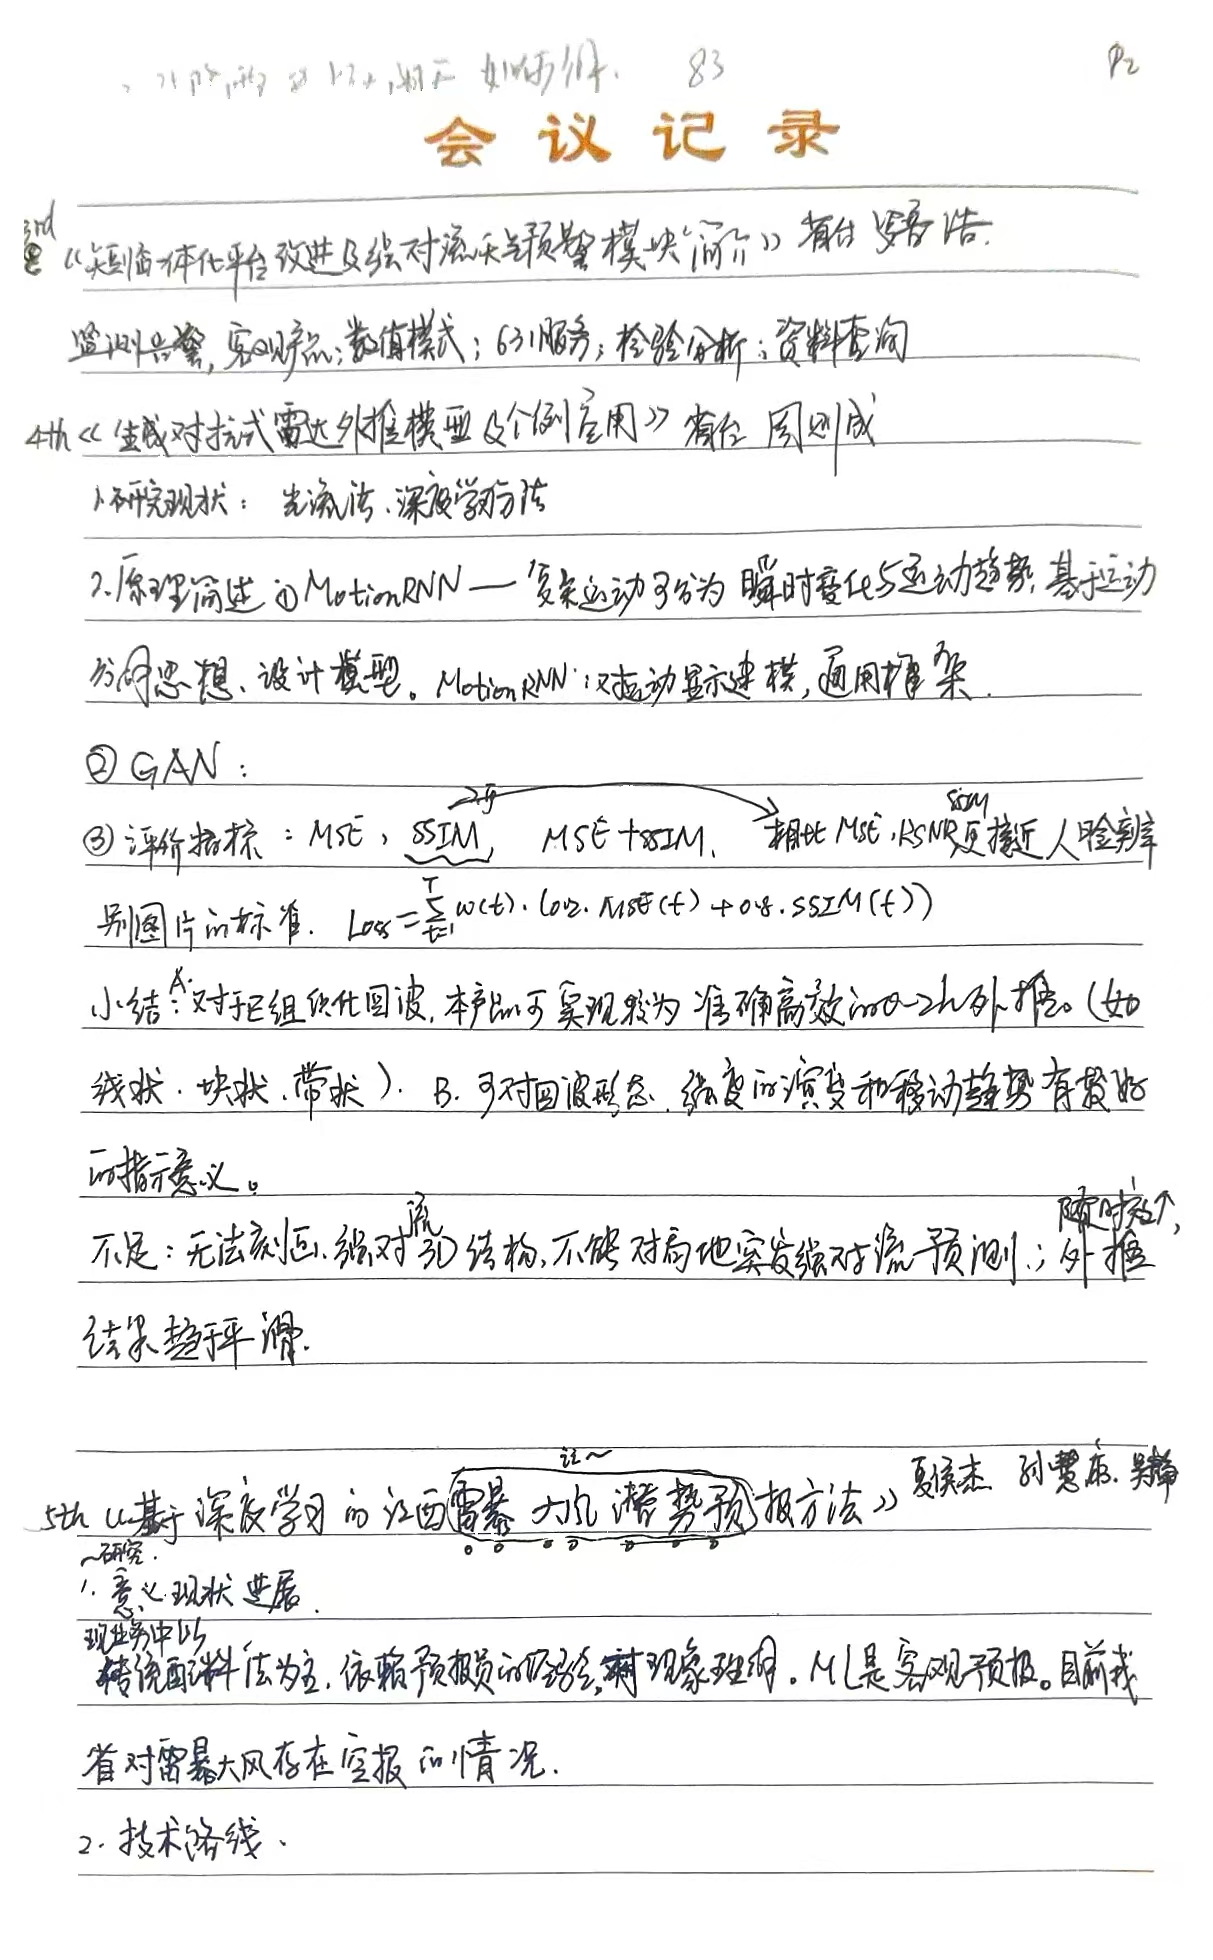 如何 83 P2
会议记录
3rd 《短临一体化平台改进及强对流天气预警模块简介》 省台 浩.
监测告警, 客观产品; 数值模式; 631服务; 检验分析; 资料查询
4th 《生成对抗式雷达外推模型及个例应用》 省台 周则成
1.研究现状: 光流法、深度学习方法
2.原理简述 ① MotionRNN — 复杂运动可分为 瞬时变化与运动趋势, 基于运动
分解思想、设计模型。MotionRNN: 对运动显示建模, 通用框架.
② GAN:
③ 评价指标: MSE, SSIM, MSE+SSIM. 相比 MSE, PSNR SSIM 更接近人脸辨
别图片的标准. Loss = Σ(t=1→T) w(t)·(0.2·MSE(t)+0.8·SSIM(t))
小结: A. 对于已组织化回波, 本产品可实现较为准确高效的0~2h外推。(如
线状、块状、带状). B. 可对回波形态、强度的演变和移动趋势有较好
的指示意义。
不足: 无法刻画强对流3D结构, 不能对局地突发强对流预测; 随时效↑, 外推
结果趋于平滑.
5th 《基于深度学习的江西雷暴大风潜势预报方法》 夏侯杰 孙慧 吴
~研究.
1. 意义 现状 进展.
现业务中以
传统配料法为主, 依赖预报员的经验, 对现象理解。ML是客观预报。目前我
省对雷暴大风存在空报的情况.
2. 技术路线.